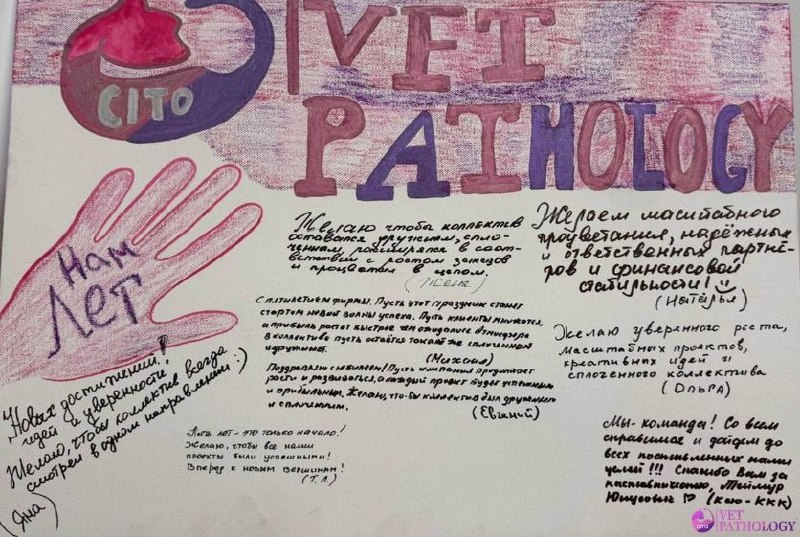 CITO
VET
PATHOLOGY
Нам
Лет
Желаю чтобы коллектив
оставался дружным, спло-
чённым, расширялся в соот-
ветствии с ростом заводов
и процветал в целом.
(Женя)
С пятилетием фирмы. Пусть этот праздник станет
стартом новой волны успеха. Пусть клиенты множатся,
а прибыль растёт быстрее чем ожидалось. Атмосфера
в коллективе пусть остаётся такой же сплочённой
и дружной.
(Михаил)
Поздравляю с юбилеем! Пусть компания продолжает
расти и развиваться, а каждый проект будет успешным
и прибыльным. Желаю, что-бы коллектив был дружным
и сплочённым.
(Евгений)
Пять лет - это только начало!
Желаю, чтобы все наши
проекты были успешными!
Вперёд к новым вершинам!
(Т.Л.)
Желаем масштабного
процветания, надёжных
и ответственных партнё-
ров и финансовой
стабильности!
(Наталья)
Желаю уверенного роста,
масштабных проектов,
креативных идей и
сплоченного коллектива
(Ольга)
Мы-команда! Со всем
справимся и дойдём до
всех поставленных нами
целей!!! Спасибо Вам за
наставничество, Теймур
(Ксю-ККК)
Новых достижений!
идей и уверенности
Желаю, чтобы коллектив всегда
смотрел в одном направлении:)
(Яна)
CITO
VET
PATHOLOGY